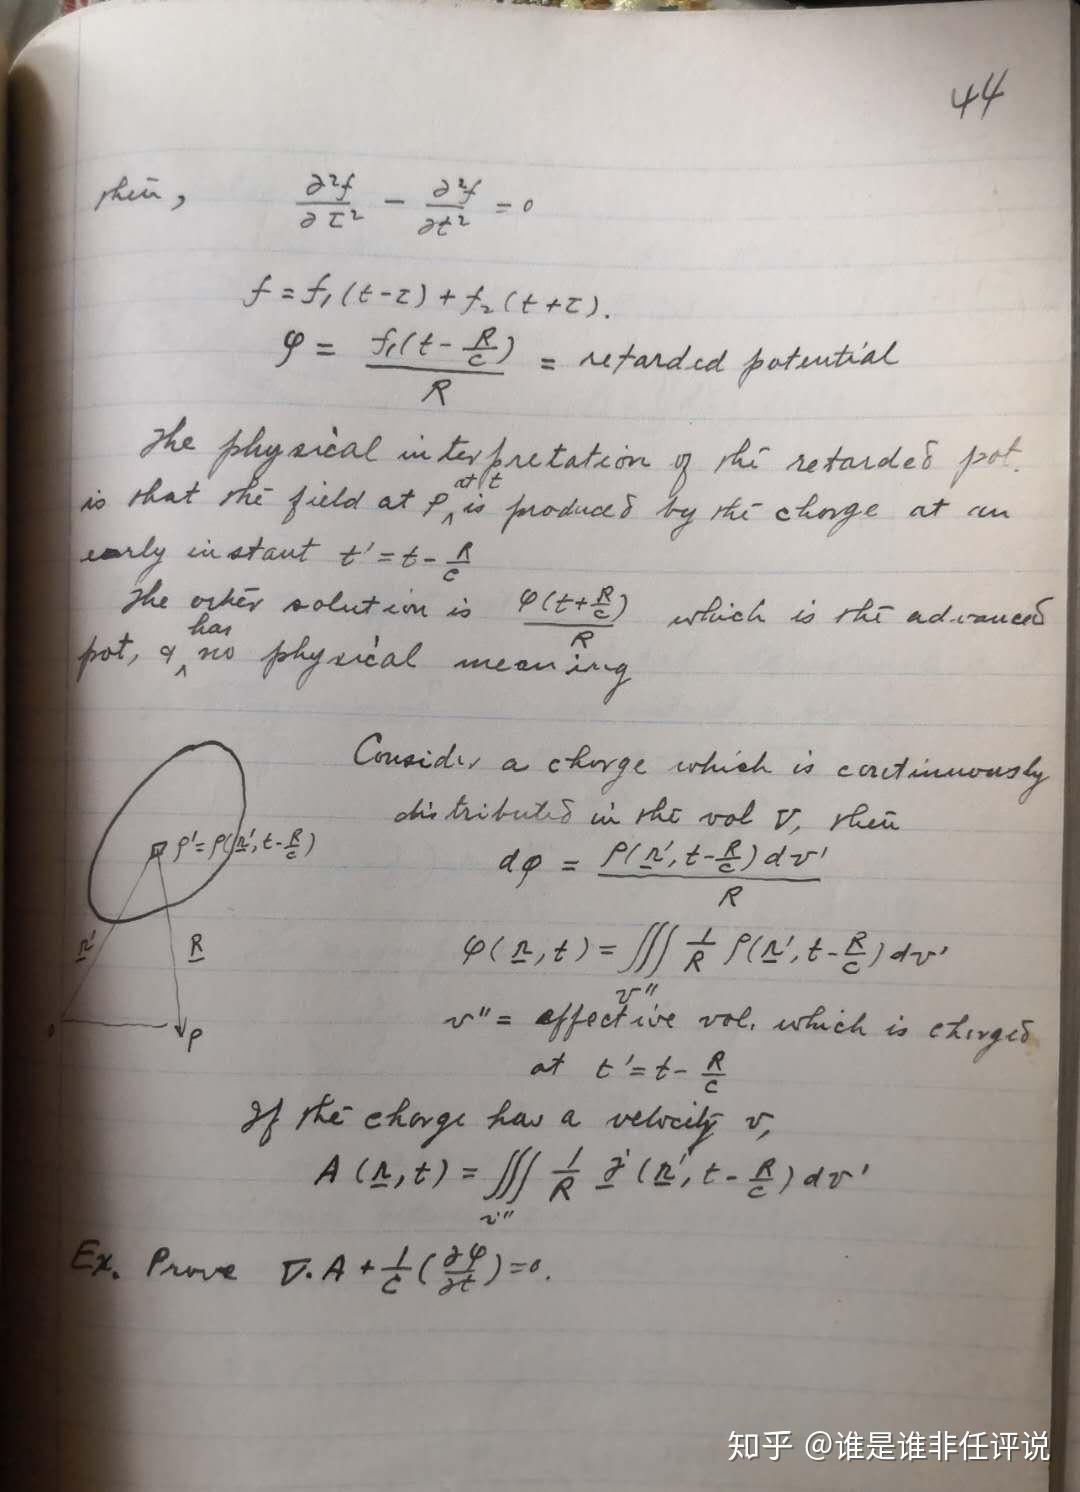 44
then, ∂²f/∂τ² − ∂²f/∂t² = 0
f = f₁(t-τ) + f₂(t+τ).
φ = f₁(t - R/c)/R = retarded potential
The physical interpretation of the retarded pot.
is that the field at P at t is produced by the charge at an
early instant t' = t - R/c
The other solution is φ(t+R/c)/R which is the advanced
pot, & has no physical meaning
Consider a charge which is continuously
distributed in the vol V, then
ρ'=ρ(r', t-R/c)
dφ = ρ(r', t-R/c)dv'/R
r' R
φ(r, t) = ∭v'' 1/R ρ(r', t-R/c) dv'
O P
v'' = effective vol. which is charged
at t' = t - R/c
If the charge has a velocity v,
A(r, t) = ∭v'' 1/R j(r', t - R/c) dv'
Ex. Prove ∇·A + 1/c (∂φ/∂t) = 0.
知乎 @谁是谁非任评说